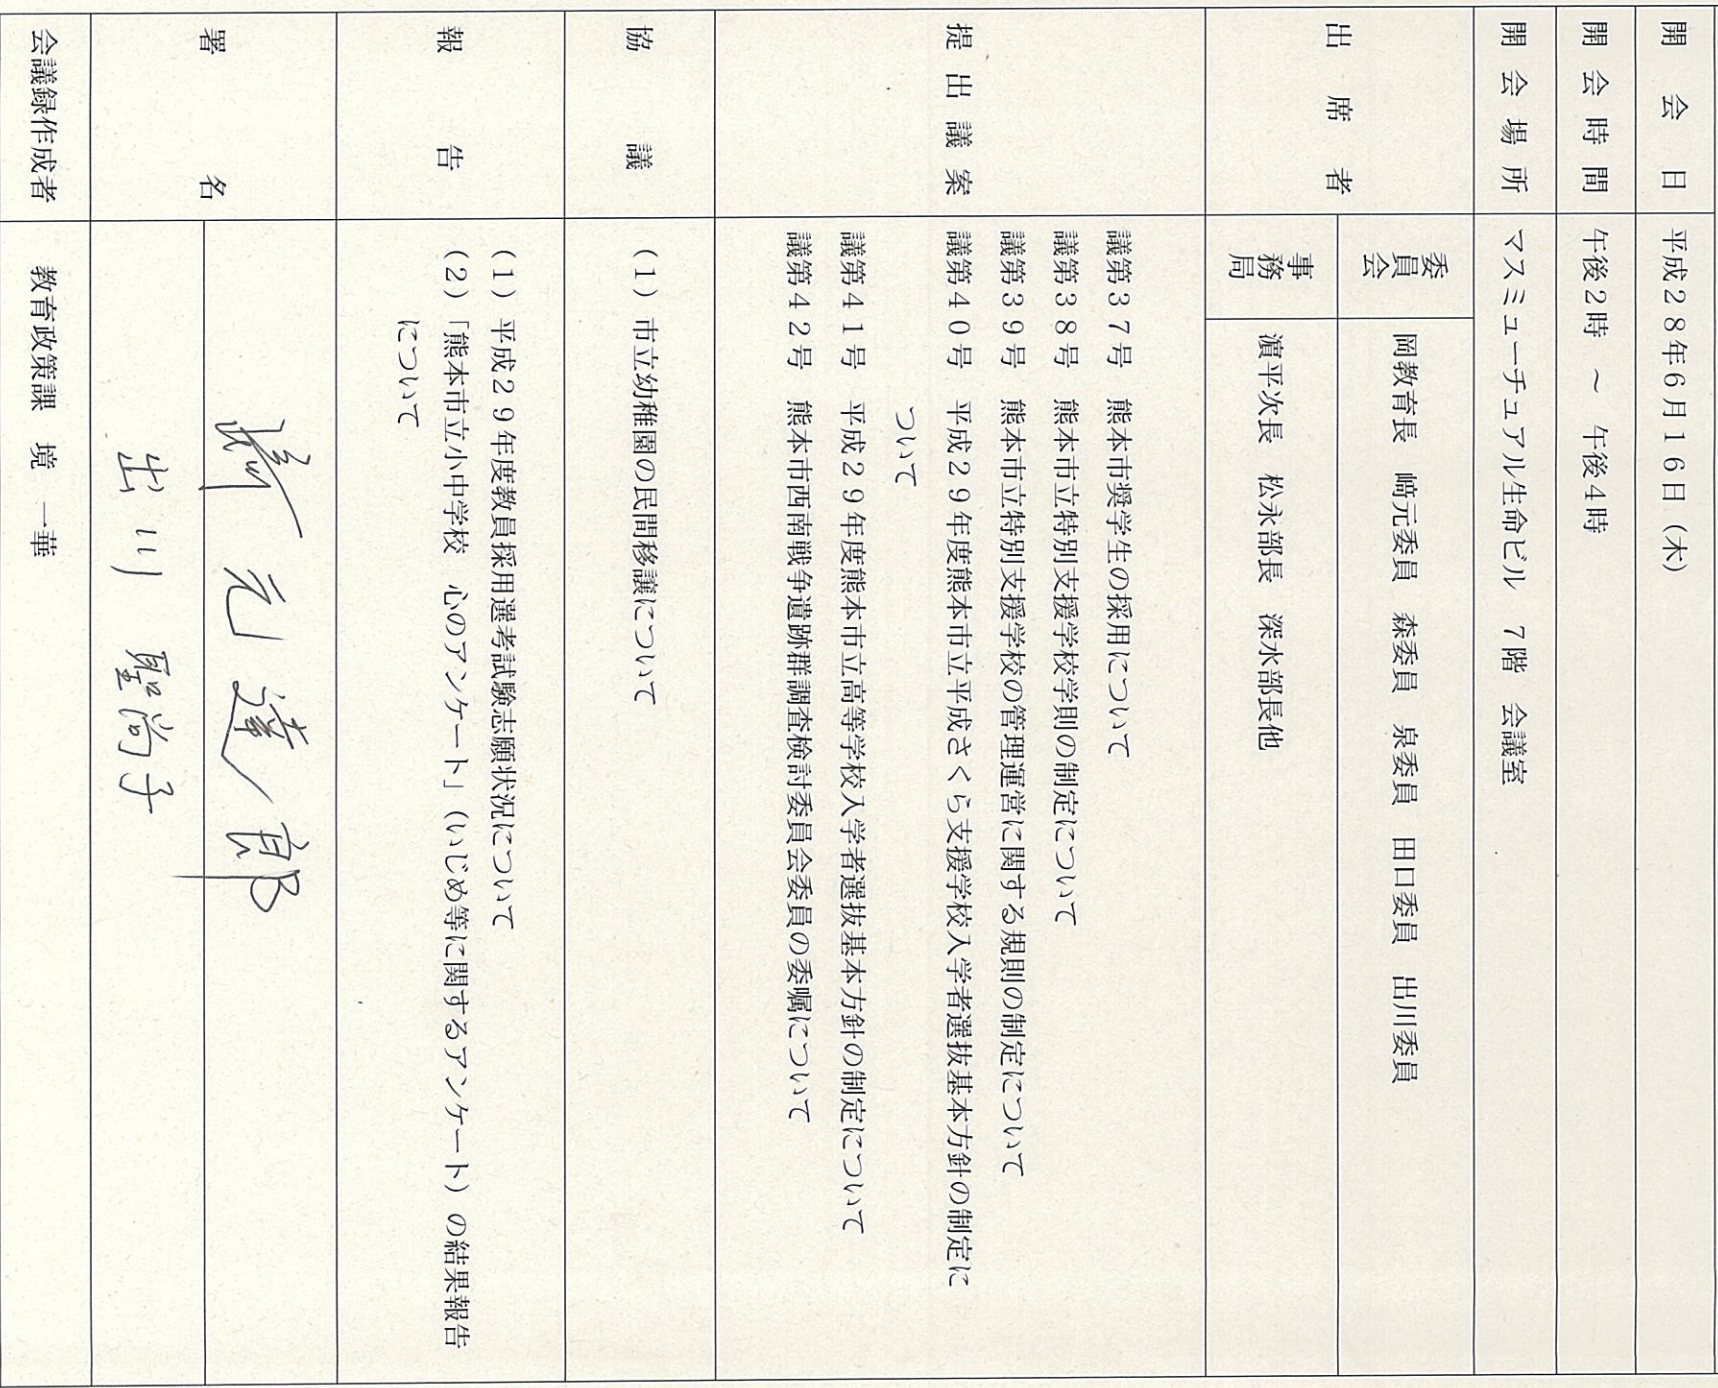 開会日 平成２８年６月１６日（木）
開会時間 午後２時 ～ 午後４時
開会場所 マスミューチュアル生命ビル ７階 会議室
出席者
委員会 岡教育長 﨑元委員 森委員 泉委員 田口委員 出川委員
事務局 濵平次長 松永部長 深水部長他
提出議案
議第３７号 熊本市奨学生の採用について
議第３８号 熊本市立特別支援学校学則の制定について
議第３９号 熊本市立特別支援学校の管理運営に関する規則の制定について
議第４０号 平成２９年度熊本市立平成さくら支援学校入学者選抜基本方針の制定に
ついて
議第４１号 平成２９年度熊本市立高等学校入学者選抜基本方針の制定について
議第４２号 熊本市西南戦争遺跡群調査検討委員会委員の委嘱について
協議
（１）市立幼稚園の民間移譲について
報告
（１）平成２９年度教員採用選考試験志願状況について
（２）「熊本市立小中学校 心のアンケート」（いじめ等に関するアンケート）の結果報告
について
署名
﨑元達郎
出川 聖尚子
会議録作成者 教育政策課 境 一華